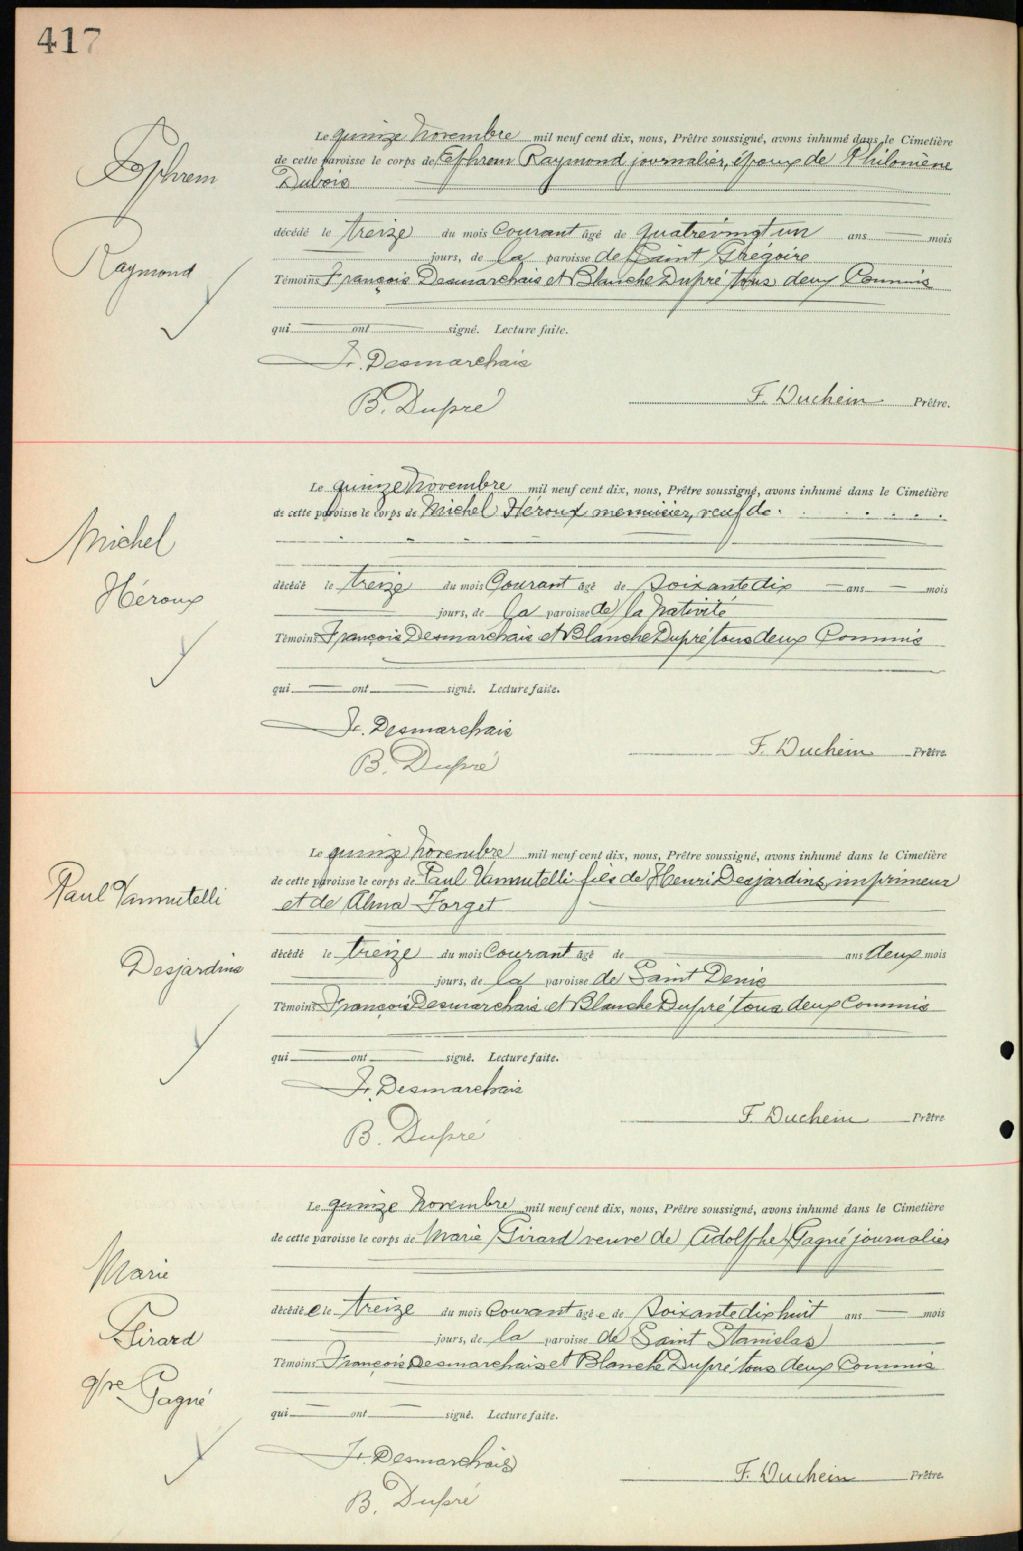 417
Ephrem
Raymond
Le quinze Novembre mil neuf cent dix, nous, Prêtre soussigné, avons inhumé dans le Cimetière
de cette paroisse le corps de Ephrem Raymond journalier, époux de Philomène
Dubois
décédé le treize du mois Courant âgé de quatrevingt un ans — mois
jours, de la paroisse de Saint Grégoire
Témoins François Desmarchais et Blanche Dupré tous deux Commis
qui — ont — signé. Lecture faite.
Fr. Desmarchais
B. Dupré
F. Duchein Prêtre.
Michel
Héroux
Le quinze Novembre mil neuf cent dix, nous, Prêtre soussigné, avons inhumé dans le Cimetière
de cette paroisse le corps de Michel Héroux menuisier, veuf de . . . . . . .
décédé le treize du mois Courant âgé de soixante dix — ans — mois
jours, de la paroisse de la Nativité
Témoins François Desmarchais et Blanche Dupré tous deux Commis
qui — ont — signé. Lecture faite.
Fr. Desmarchais
B. Dupré
F. Duchein Prêtre.
Paul Vannutelli
Desjardins
Le quinze Novembre mil neuf cent dix, nous, Prêtre soussigné, avons inhumé dans le Cimetière
de cette paroisse le corps de Paul Vannutelli fils de Henri Desjardins, imprimeur
et de Alma Forget
décédé le treize du mois Courant âgé de ans deux mois
jours, de la paroisse de Saint Denis
Témoins François Desmarchais et Blanche Dupré tous deux Commis
qui — ont — signé. Lecture faite.
Fr. Desmarchais
B. Dupré
F. Duchein Prêtre
Marie
Girard
Gagné
Le quinze Novembre mil neuf cent dix, nous, Prêtre soussigné, avons inhumé dans le Cimetière
de cette paroisse le corps de Marie Girard veuve de Adolphe Gagné journalier
décédé e le treize du mois Courant âgé e de soixante dix huit ans — mois
jours, de la paroisse de Saint Stanislas
Témoins François Desmarchais et Blanche Dupré tous deux Commis
qui — ont — signé. Lecture faite.
Fr. Desmarchais
B. Dupré
F. Duchein Prêtre.